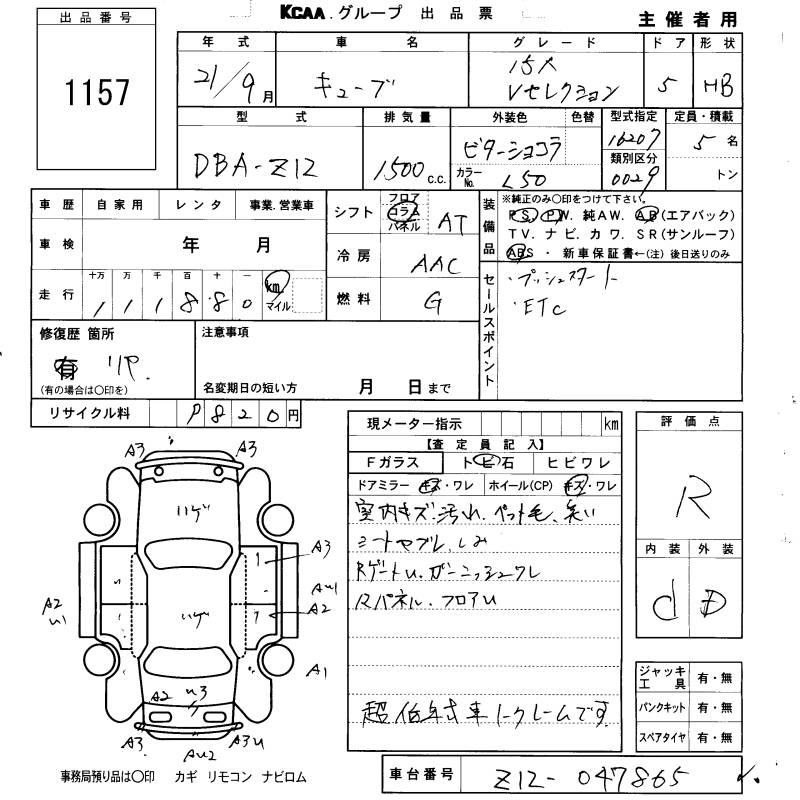 KCAA.グループ 出品票
主催者用
出品番号
1157
年式 車名 グレード ドア 形状
21/9月 キューブ 15X Vセレクション 5 HB
型式 排気量 外装色 色替 型式指定 定員・積載
DBA-Z12 1500 c.c. ビターショコラ 16207 5名
カラーNo. L50 類別区分 0029 トン
車歴 自家用 レンタ 事業.営業車
車検 年 月
走行 十万 万 千 百 十 一
111880 km マイル
シフト フロア コラム パネル AT
冷房 AAC
燃料 G
装備品
※純正のみ〇印をつけて下さい。
PS. PW. 純AW. AB(エアバック)
TV. ナビ. カワ. SR(サンルーフ)
ABS ・ 新車保証書←(注) 後日送りのみ
セールスポイント
・プッシュスタート
・ETC
修復歴 箇所
有 リヤ.
(有の場合は〇印を)
注意事項
名変期日の短い方 月 日まで
リサイクル料 P820円
現メーター指示 km
【査定員記入】
Fガラス トビ石 ヒビワレ
ドアミラー キズ・ワレ ホイール(CP) キズ・ワレ
室内キズ.汚れ.ペット毛.臭い
シートヤブレ.しみ
RゲートU.ガーニッシュワレ
Rパネル.フロアU
超低年式車ノークレームです
評価点
R
内装 外装
d D
ジャッキ工具 有・無
パンクキット 有・無
スペアタイヤ 有・無
A3 A3
いゲ
A3
AU1
A2
A2
U1
いゲ
A1
A2 U3
A3 AU2 A3U
事務局預り品は〇印 カギ リモコン ナビロム
車台番号 Z12-047865